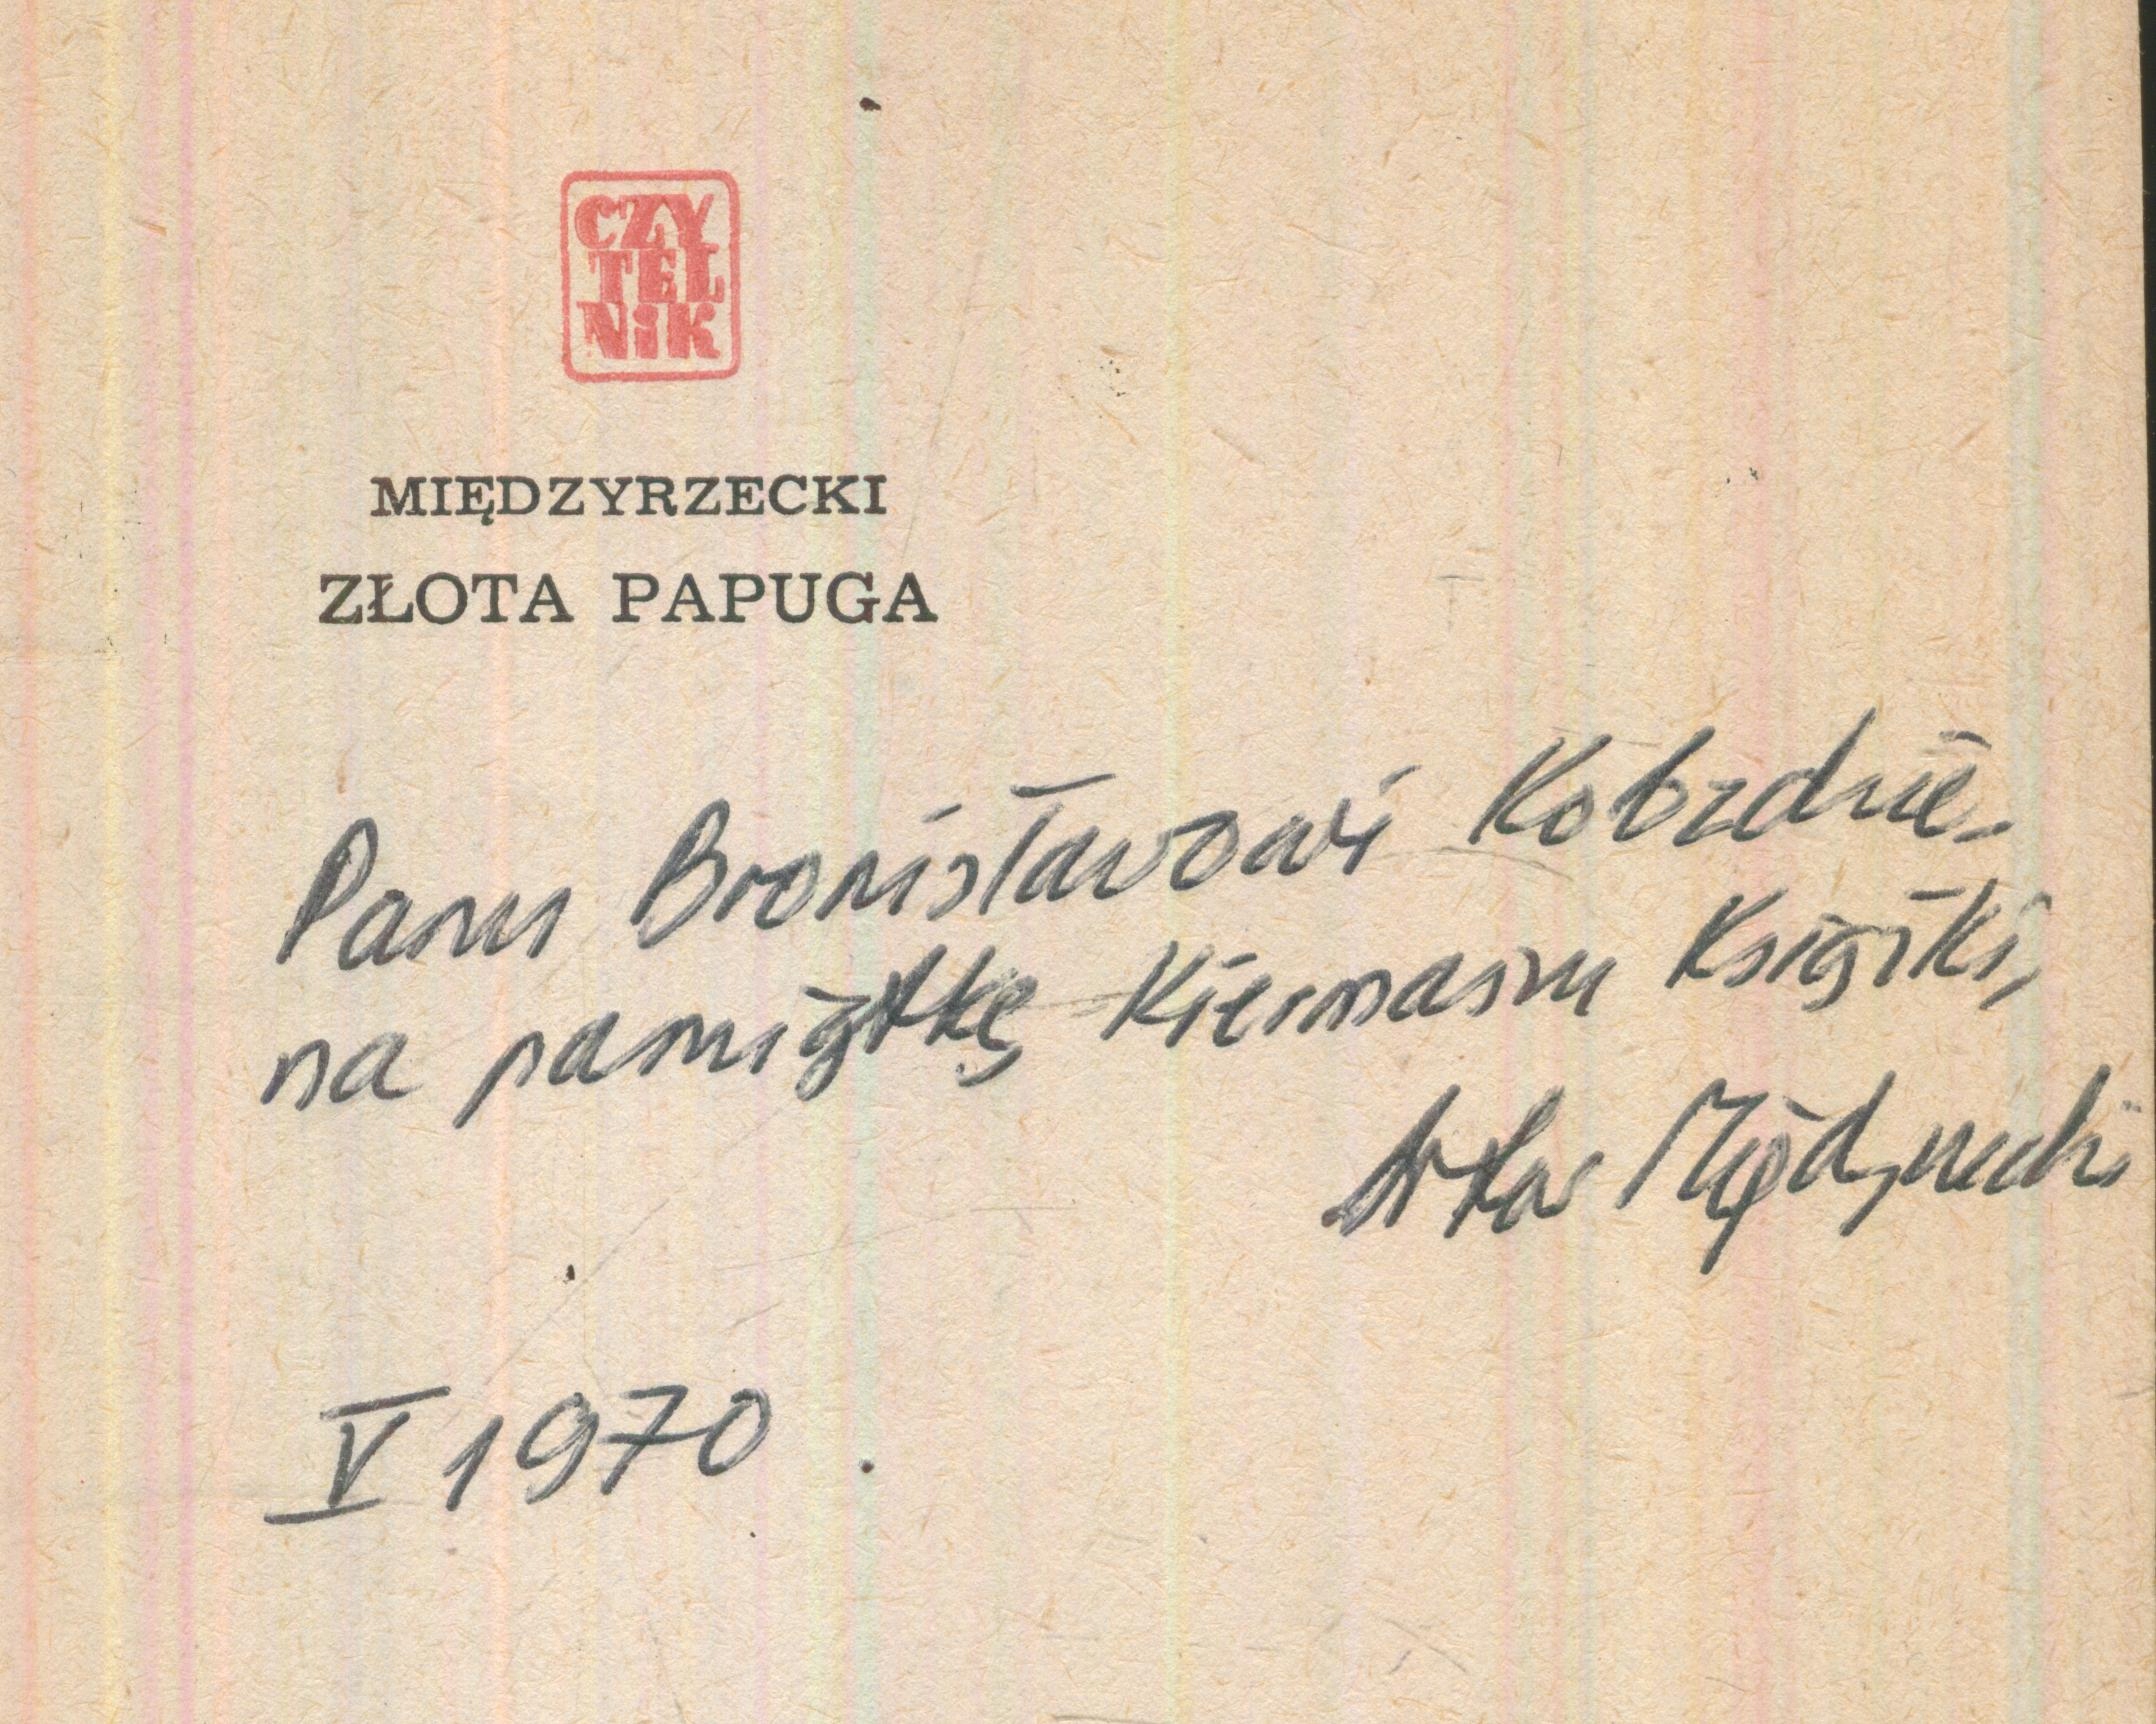 CZY
TEL
NiK
MIĘDZYRZECKI
ZŁOTA PAPUGA
Panu Bronisławowi Kobzdzie-
na pamiątkę Kiermaszu Książki,
Artur Międzyrzecki
V 1970